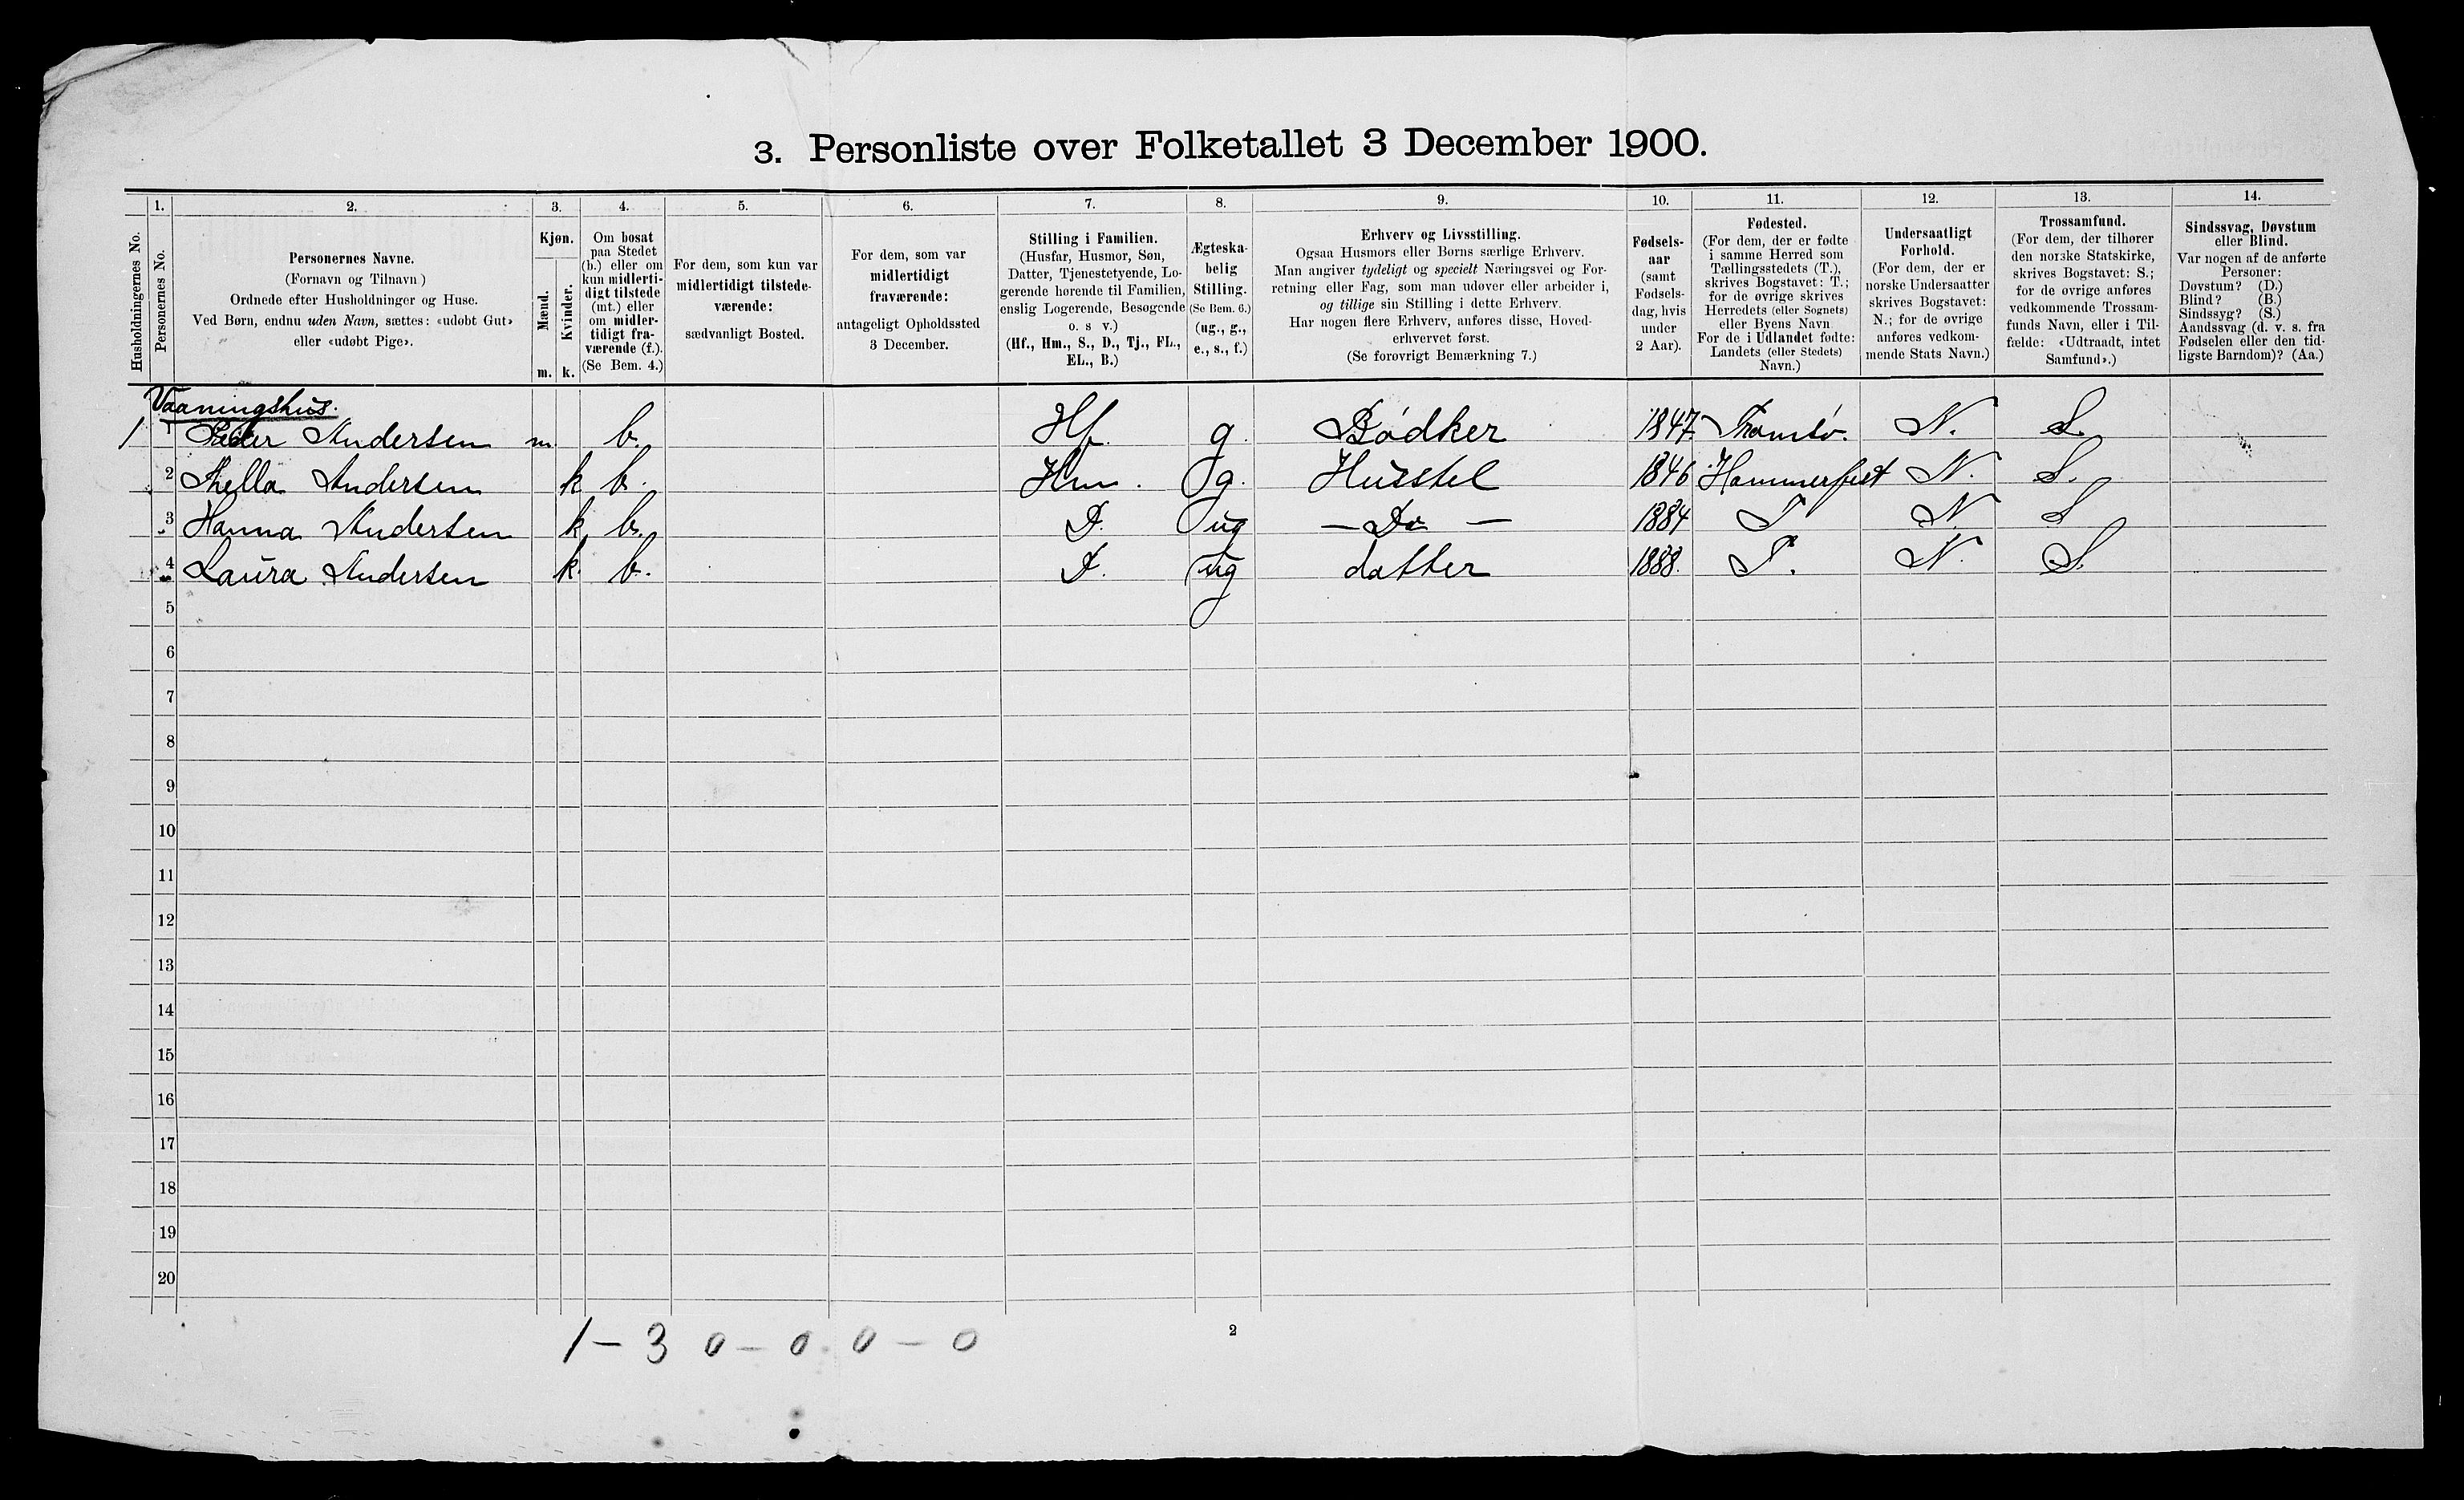 3. Personliste over Folketallet 3 December 1900.
1. 2. 3. 4. 5. 6. 7. 8. 9. 10. 11. 12. 13. 14.
Husholdningernes No.
Personernes No.
Personernes Navne.
(Fornavn og Tilnavn)
Ordnede efter Husholdninger og Huse.
Ved Børn, endnu uden Navn, sættes: «udøbt Gut»
eller «udøbt Pige».
Kjøn.
Mænd.
Kvinder.
m. k.
Om bosat
paa Stedet
(b.) eller om
kun midlerti-
digt tilstede
(mt.) eller
om midler-
tidigt fra-
værende (f.).
(Se Bem. 4.)
For dem, som kun var
midlertidigt tilstede-
værende:
sædvanligt Bosted.
For dem, som var
midlertidigt
fraværende:
antageligt Opholdssted
3 December.
Stilling i Familien.
(Husfar, Husmor, Søn,
Datter, Tjenestetyende, Lo-
gerende hørende til Familien,
enslig Logerende, Besøgende
o. s v.)
(Hf., Hm., S., D., Tj., FL.,
EL., B.)
Ægteska-
belig
Stilling.
(Se Bem. 6.)
(ug., g.,
e., s., f.)
Erhverv og Livsstilling.
Ogsaa Husmors eller Børns særlige Erhverv.
Man angiver tydeligt og specielt Næringsvei og For-
retning eller Fag, som man udøver eller arbeider i,
og tillige sin Stilling i dette Erhverv.
Har nogen flere Erhverv, anføres disse, Hoved-
erhvervet først.
(Se forøvrigt Bemærkning 7.)
Fødsels-
aar
(samt
Fødsels-
dag, hvis
under
2 Aar).
Fødested.
(For dem, der er fødte
i samme Herred som
Tællingsstedets (T.),
skrives Bogstavet: T.;
for de øvrige skrives
Herredets (eller Sognets)
eller Byens Navn
For de i Udlandet fødte:
Landets (eller Stedets)
Navn.)
Undersaatligt
Forhold.
(For dem, der er
norske Undersaatter
skrives Bogstavet:
N.; for de øvrige
anføres vedkom-
mende Stats Navn.)
Trossamfund.
(For dem, der tilhører
den norske Statskirke,
skrives Bogstavet: S.;
for de øvrige anføres
vedkommende Trossam-
funds Navn, eller i Til-
fælde: «Udtraadt, intet
Samfund».)
Sindssvag, Døvstum
eller Blind.
Var nogen af de anførte
Personer:
Døvstum? (D.)
Blind? (B.)
Sindssyg? (S.)
Aandssvag (d. v. s. fra
Fødselen eller den tid-
ligste Barndom)? (Aa.)
Vaaningshus.
1 1 Peder Andersen m. b. Hf. g. Bødker 1847. Tromsø. N. S.
2 Andersen k b. Hm. g. Husstel 1846 Hammerfest N. S.
3 Hanna Andersen k. b. D. ug — Do — 1884 T N. S
4 Laura Andersen k. b. D. ug datter 1888. T. N. S.
5
6
7
8
9
10
11
12
13
14
15
16
17
18
19
20
1 – 3 0 – 0 0 – 0
2